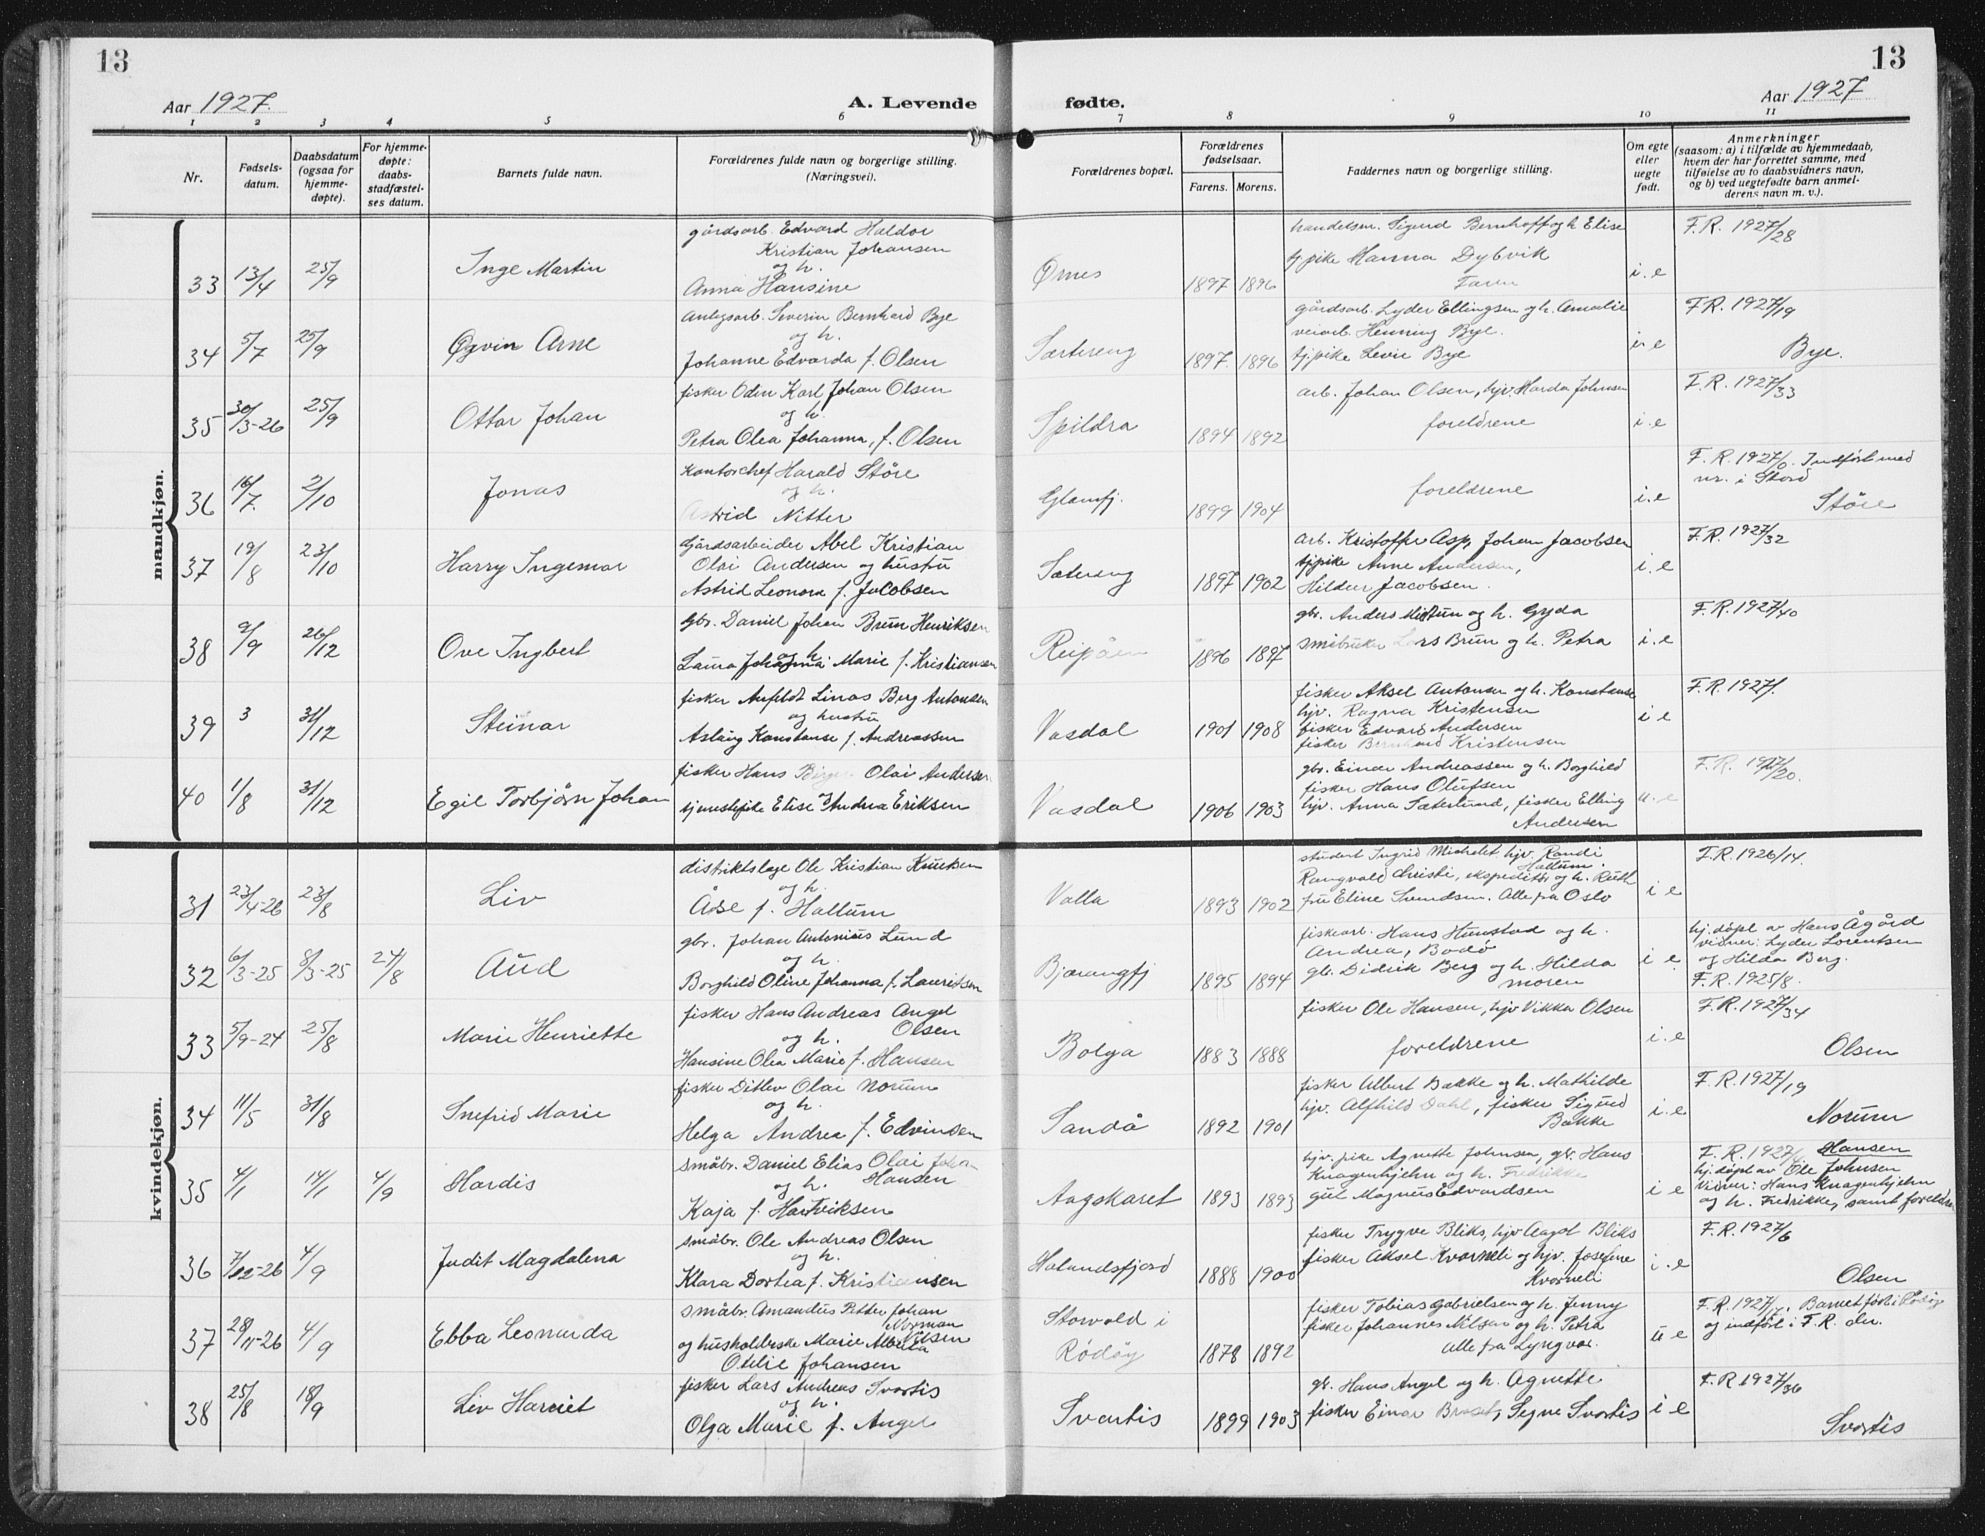 13
13
Aar 1927.
A. Levende
fødte.
Aar 1927
1 2 3 4 5 6 7 8 9 10 11
Nr.
Fødsels-
datum.
Daabsdatum
(ogsaa for
hjemme-
døpte).
For hjemme-
døpte:
daabs-
stadfæstel-
ses datum.
Barnets fulde navn.
Forældrenes fulde navn og borgerlige stilling.
(Næringsvei).
Forældrenes bopæl.
Forældrenes
fødselsaar.
Farens. Morens.
Faddernes navn og borgerlige stilling.
Om egte
eller
uegte
født.
Anmerkninger
(saasom: a) i tilfælde av hjemmedaab,
hvem der har forrettet samme, med
tilføielse av to daabsvidners navn,
og b) ved uegtefødte barn anmel-
derens navn m. v.).
mandkjøn.
33 13/4 25/9 Inge Martin
gårdsarb. Edvard Haldor
Kristian Johansen
og h.
Anna Hansine
Ørnes 1897 1896
handelsm. Sigurd Bernhoff og h. Elise
tj pike Hanna Dybvik
Faren
i. e
F. R. 1927/28
34 5/7 25/9 Øyvin Arne
Anlegsarb. Severin Bernhard Bye
og h.
Johanne Edvarda f. Olsen
Sætereng 1897. 1896
gårdsarb. Lyder Ellingsen og h. Amalie
veiarb. Henning Bye.
tj pike Levie Bye
i. e
F. R. 1927/19
Bye.
35 30/3-26 25/9 Ottar Johan
fisker Odin Karl Johan Olsen
og h.
Petra Olea Johanna, f. Olsen
Spildra 1894 1892
arb. Johan Olsen, hjv. Harda Johnsen
foreldrene
i. e
F. R. 1927/33
36 16/7. 2/10 Jonas
Kontorchef Harald Støre
og h.
Astrid Nitter
Glomfj. 1899 1904
foreldrene
i. e
F. R. 1927/0. Indført med
nr. i Stord
Støre
37 19/8 23/10 Harry Ingemar
Gårdsarbeider Abel Kristian
Olai Andersen og hustru
Astrid Leonora f. Jacobsen
Sætereng 1897 1902
arb. Kristoffer Asp, Johan Jacobsen
tjpike Anne Andersen,
Hildur Jacobsen.
i. e
F. R. 1927/32
38 9/9 26/12 Ove Ingbert
gbr. Daniel Johan Brun Henriksen
og h.
Laura Johanna Marie f. Kristiansen
Reipåen 1896 1897
gbr. Anders Mistun og h. Gyda
småbruker Lars Brun og h. Petra
i. e
F. R. 1927/40
39 3 31/12 Steinar
fisker Anfeldt Linas Berg Antonsen
og hustru
Aslaug Konstanse f. Andreassen
Vasdal 1901 1908
fisker Aksel Antonsen og h. Konstanse
hjv. Ragna Kristensen
fisker Edvard Andersen
fisker Bernhard Kristensen
i e
F. R. 1927/.
40 1/8 31/12 Egil Torbjørn Johan
fisker Hans Birger Olai Andersen
og
tjenestepike Elise Andrea Eriksen
Vasdal 1906 1903
gbr. Einar Andreassen og h. Borghild
fisker Hans Olufsen
hjv. Anna Sæterlund, fisker Elling
Andersen
u. e
F. R. 1927/20.
kvindekjøn.
31 23/4-26 23/8 Liv
distriktslæge Ole Kristian Knutsen
og h.
Åse f. Hallum
Valla 1893 1902
student Ingrid Michelet hjv. Randi
Hallum.
Rangvald Christi, ekspeditør og h. Ruth
fru Eline Svendsen. Alle fra Oslo
i e
F. R. 1926/14.
32 6/3-25 8/3-25 24/8 Aud
gbr. Johan Antonius Lund
og h.
Borghild Oline Johanna f. Lauritsen
Bjærangfj 1895 1894
fiskearb. Hans Hunstad og h.
Andrea, Bodø
gb. Didrik Berg og h. Hilda
moren
i e
hj. døpt av Hans Ågård
vidner: Lyder Lorentsen
og Hilda Berg.
F. R. 1925/8.
33 5/9-24 25/8 Marie Henriette
fisker Hans Andreas Angel
Olsen
og h.
Hansine Olea Marie f. Hansen
Bolga 1883 1888
fisker Ole Hansen, hjv Vikka Olsen
foreldrene
i. e
F. R. 1927/34
Olsen
34 11/5 31/8 Snefrid Marie
fisker Ditlev Olai Norum
og h.
Helga Andrea f. Edvinsen
Sandå 1892 1901
fisker Albert Bakke og h. Mathilde
hjv. Alfhild Dahl, fisker Sigurd
Bakke
i. e
F. R. 1927/19
Norum
35 4/1 14/1 4/9 Hardis
småbr. Daniel Elias Olai Johan
Hansen
og h.
Kaja f. Hartviksen
Aagskaret 1893 1893
hjv. pike Agnette Johnsen, gb. Hans
Knagenhjelm og h. Fredrikke
gut Magnus Edvardsen
i e
F. R. 1927/ Hansen
hj. døpt av Ole Johnsen
Vidner: Hans Knagenhjelm
og h. Fredrikke, samt foreldre
36 7/12-26 4/9 Judit Magdalena
småbr. Ole Andreas Olsen
og h.
Klara Dortea f. Kristiansen
Halandsfjord 1888 1900
fisker Trygve Bliks, hjv Aagot Bliks
fisker Aksel Kvarneli og hjv. Josefine
Kvarneli
i. e
F. R. 1927/6
Olsen
37 28/11-26 4/9 Ebba Leonarda
småbr. Amandus Petter Johan
Norman
Nilsen
og husholderske Marie Alberta
Otelie Johansen
Storvold i
Rødøy
1878 1892
fisker Tobias Gabrielsen og h. Jenny
fisker Johannes Nilsen og h. Petra
alle fra Lyngvær.
u e
F. R. 1927/7. Barnet født i Rødøy
og indført i F. R. der.
38 25/8 18/9 Liv Harriet
fisker Lars Andreas Svartis
og h.
Olga Marie f. Angel
Svartis 1899 1903
gb. Hans Angel og h. Agnette
fisker Einar Braset, Segne Svartis
i e
F. R. 1927/36
Svartis